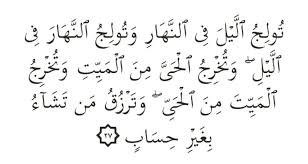 تُولِجُ ٱلَّيْلَ فِى ٱلنَّهَارِ وَتُولِجُ ٱلنَّهَارَ فِى
ٱلَّيْلِ ۖ وَتُخْرِجُ ٱلْحَىَّ مِنَ ٱلْمَيِّتِ وَتُخْرِجُ
ٱلْمَيِّتَ مِنَ ٱلْحَىِّ ۖ وَتَرْزُقُ مَن تَشَآءُ
بِغَيْرِ حِسَابٍ ۝٢٧